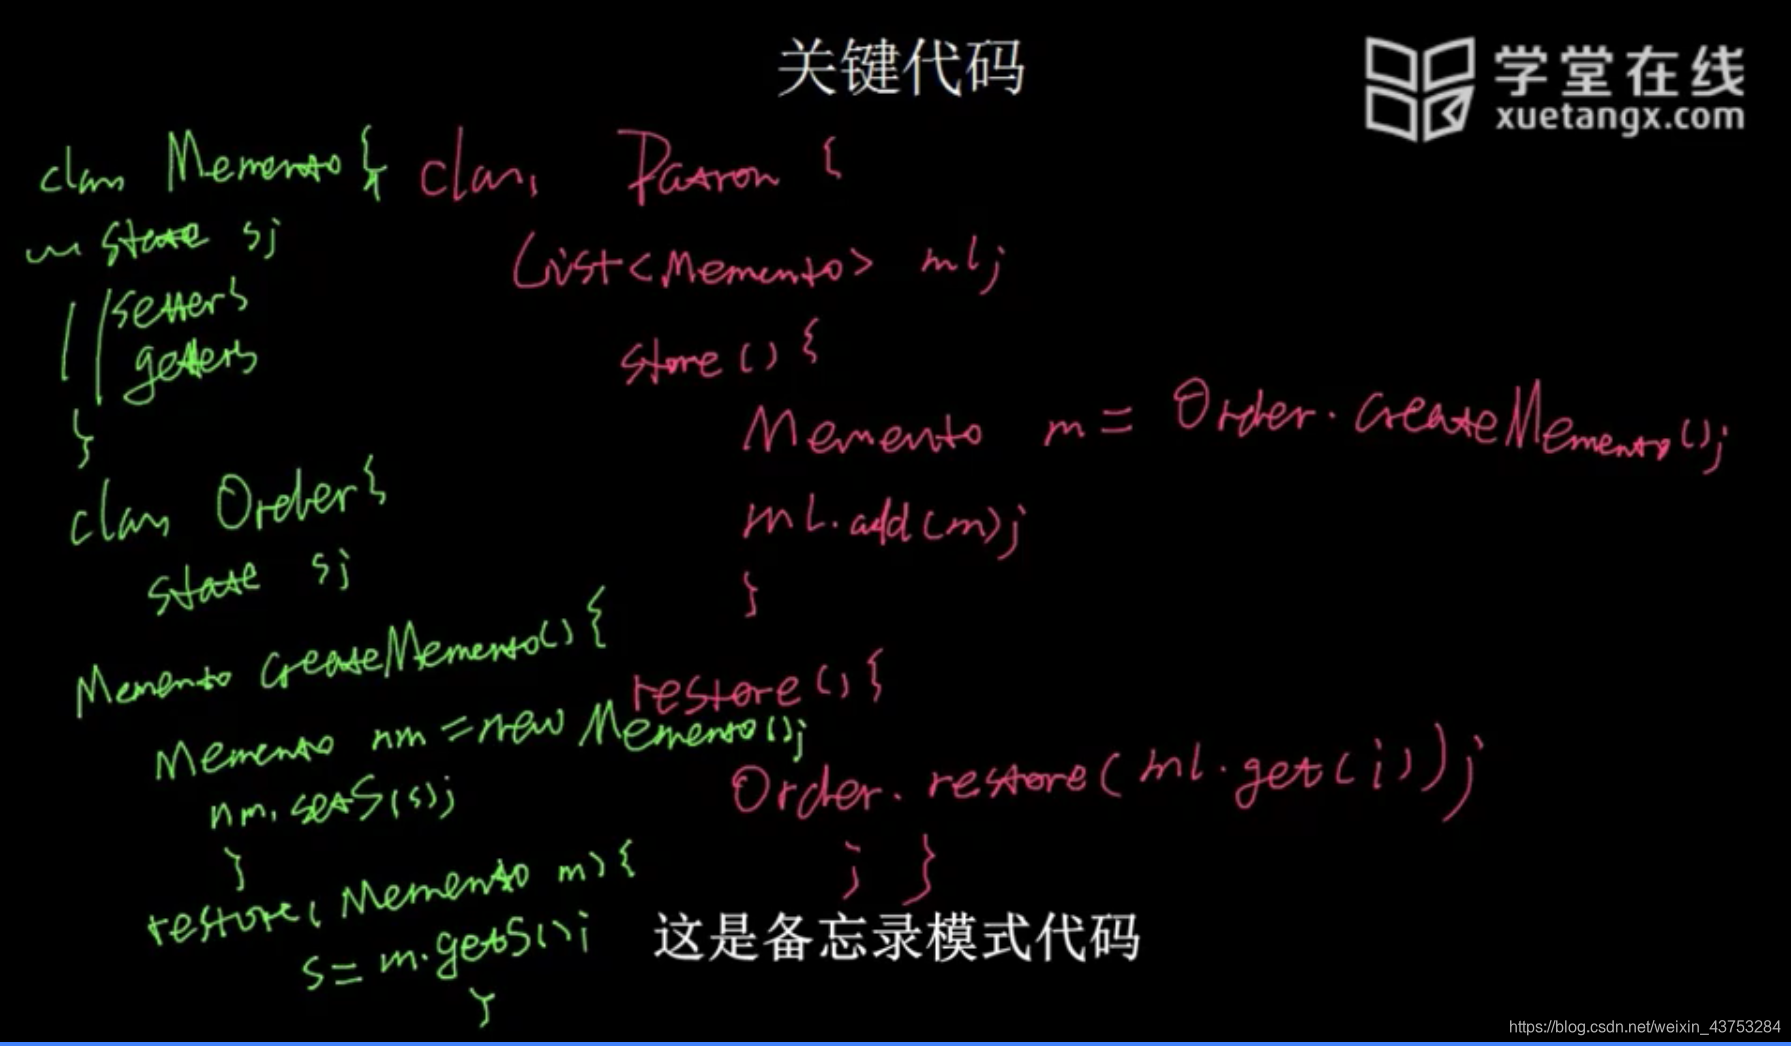 关键代码
学堂在线
xuetangx.com
class Memento {
State s;
//setters
getters
}
class Order {
state s;
Memento createMemento() {
Memento nm = new Memento();
nm.setS(s);
}
restore(Memento m) {
s = m.getS();
}
class Patron {
List<Memento> ml;
store() {
Memento m = Order.createMemento();
ml.add(m);
}
restore() {
Order.restore(ml.get(i));
; }
这是备忘录模式代码
https://blog.csdn.net/weixin_43753284